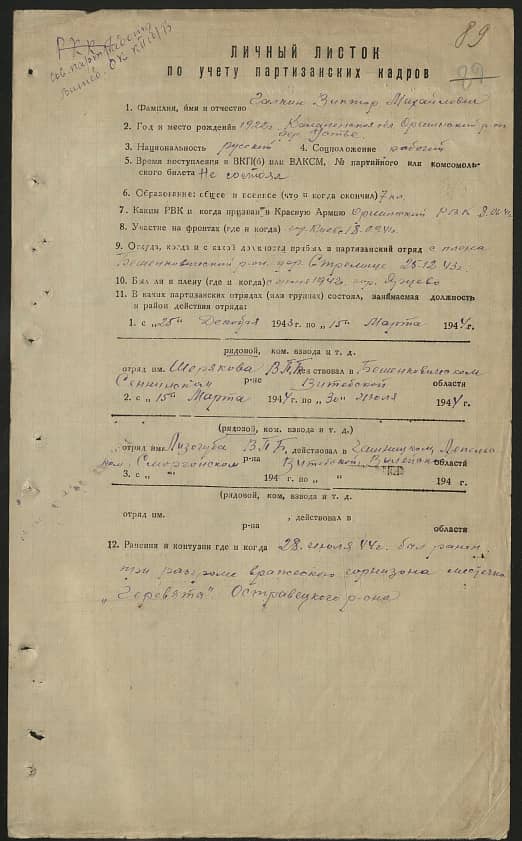 89
Р.К.К.
сов. парт. работн
ЛИЧНЫЙ ЛИСТОК
по учету партизанских кадров
89
1. Фамилия, имя и отчество Галкин Виктор Михайлович
2. Год и место рождения 1922г. Оршинский р-он
дер. Устье
3. Национальность русский 4. Соцположение рабочий
5. Время поступления в ВКП(б) или ВЛКСМ, № партийного или комсомоль-
ского билета Не состоял
6. Образование: общее и военное (что и когда окончил) 7 кл.
7. Каким РВК и когда призван в Красную Армию Оршинский РВК
8. Участие на фронтах (где и когда)
9. Откуда, когда и с какой должности прибыл в партизанский отряд с плена
Бешенковичский р-он. дер. Стрелище 25.12.43г.
10. Был ли в плену (где и когда) 1942г. гор. Ярцево
11. В каких партизанских отрядах (или группах) состоял, занимаемая должность
и район действия отряда:
1. с „25" Декабря 1943 г. по „15" Марта 1944г.
рядовой, ком. взвода и т. д.
отряд им. Шерякова ВПБ действовал в Бешенковичском
Сенненском р-не Витебской области
2. с „15" Марта 1944 г. по „30" июля 1944г.
(рядовой, ком. взвода и т. д.)
отряд им. Лизогуба ВПБ, действовал в Чашницком, Лепель-
ском, Сморгонском р-на Витебской Вилейской области
3. с „ " 194 г. по „ " 194 г.
(рядовой, ком. взвода и т. д.
отряд им. , действовал в
р-на области
12. Ранения и контузии где и когда 28 июля 44г. был ранен
при разгроме вражеского гарнизона местечка
„Гервяты". Островецкого р-она